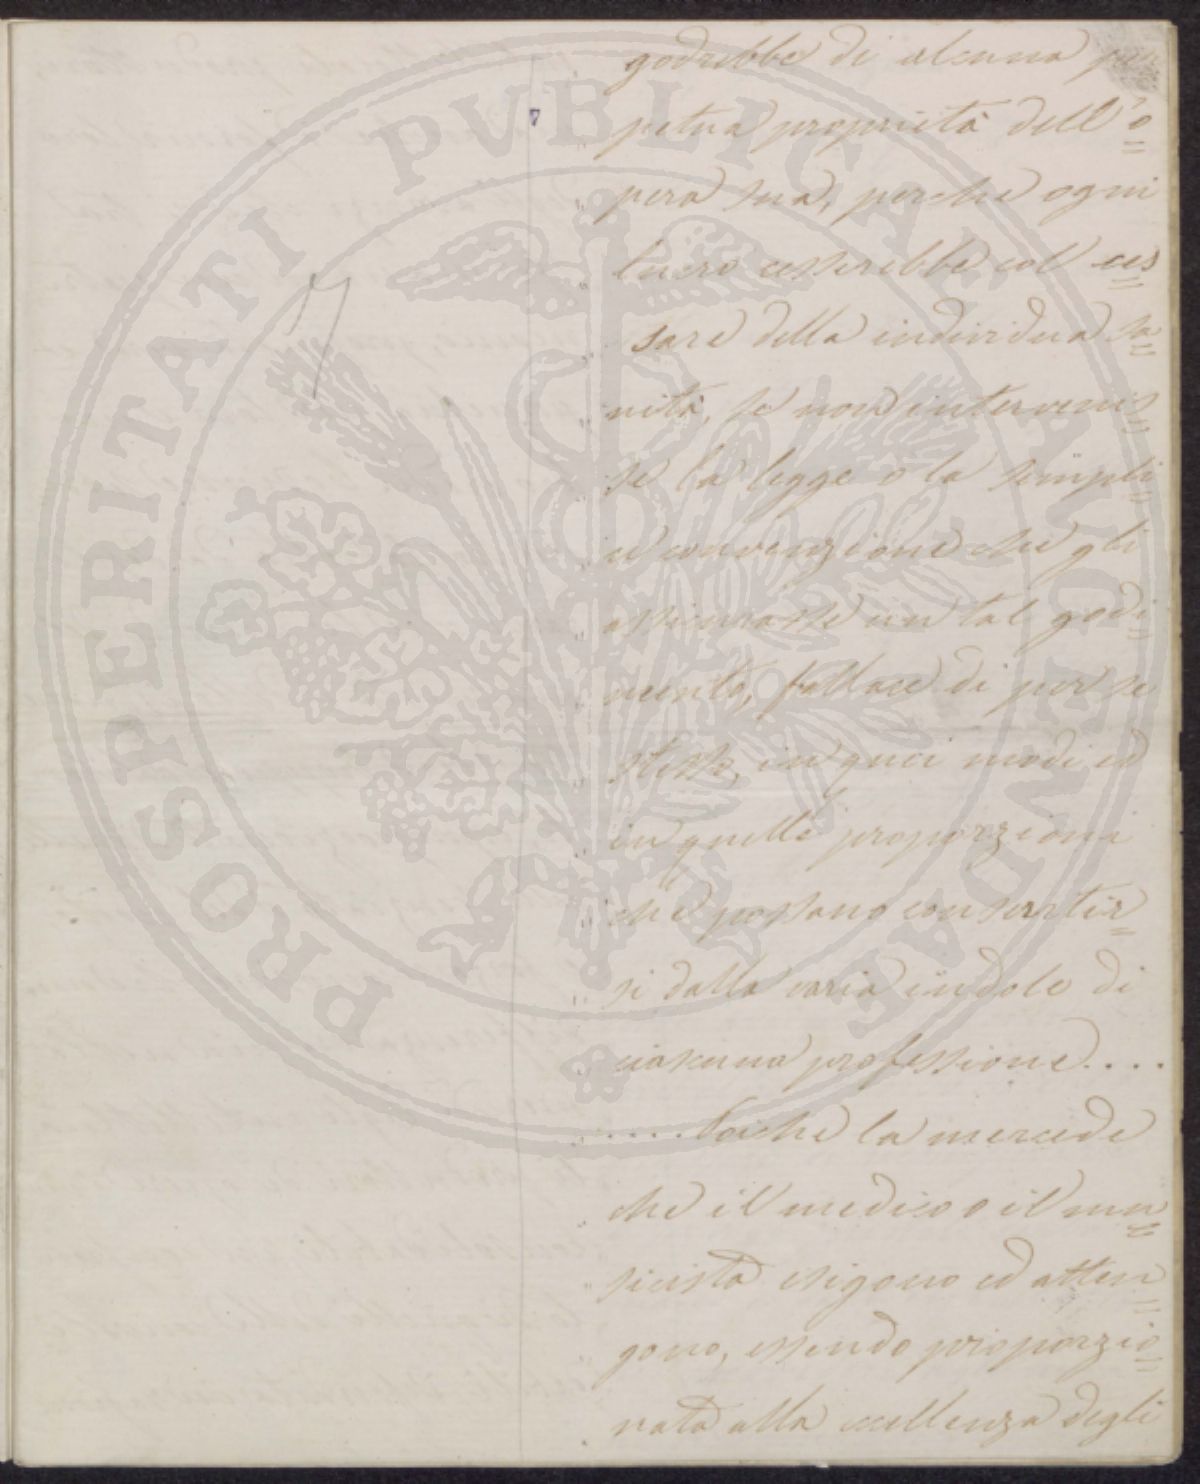 godrebbe di alcuna per
petua proprietà dell'o
pera sua, perchè ogni
lucro cesserebbe col ces
sare della individua sa
nità, se non intervenis
se la legge o la sempli
ce convenzione che gli
assicurasse un tal godi
mento, fallace di per se
stesso, in quei modi ed
in quelle proporzioni
che possano consentir
si dalla varia indole di
ciascuna professione....
..... Poichè la mercede
che il medico o il mu
sicista esigono ed otten
gono, essendo proporzio
nata alla eccellenza degli
PROSPERITATI PVBLICAE AVGENDAE